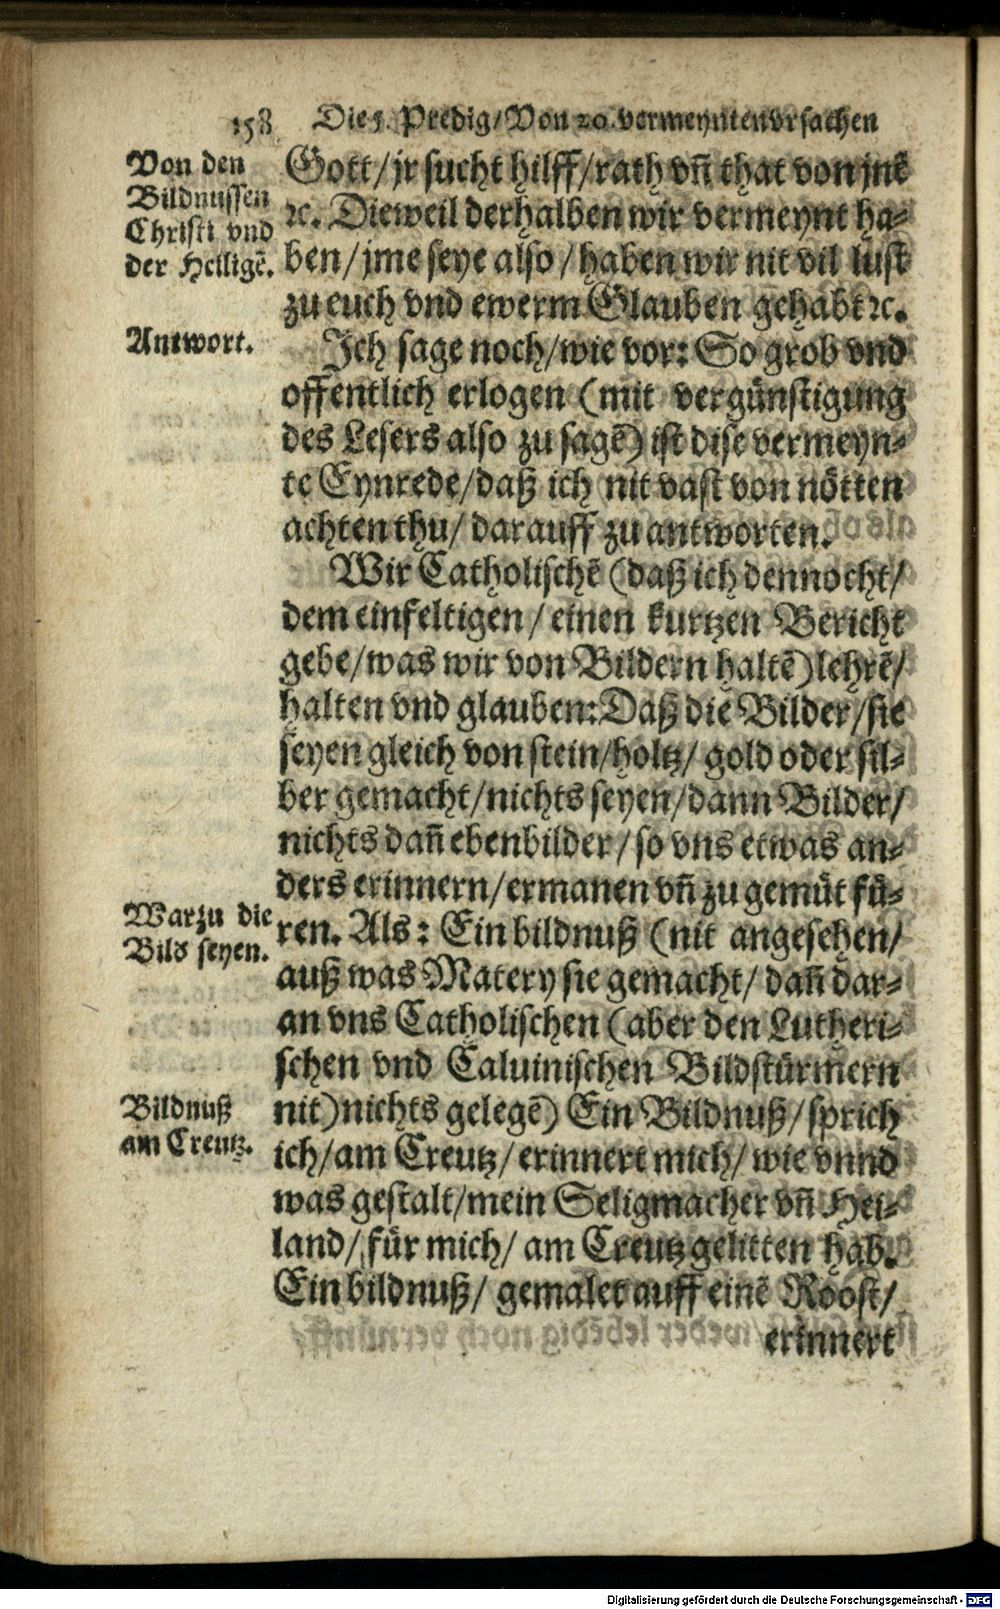 158 Die 5. Predig/Von 20. vermeynten vrsachen
Von den
Bildnussen
Christi vnd
der Heiligẽ.
Gott/jr sucht hilff/rath vñ that von jnẽ
ꝛc. Dieweil derhalben wir vermeynt ha⸗
ben/jme seye also/haben wir nit vil lust
zu euch vnd ewerm Glauben gehabt ꝛc.
Antwort.
Ich sage noch/wie vor: So grob vnd
offentlich erlogen (mit vergünstigung
des Lesers also zu sagẽ) ist dise vermeyn⸗
te Eynrede/daß ich nit vast von nötten
achten thu/darauff zu antworten.
Wir Catholischẽ (daß ich dennocht/
dem einfeltigen/einen kurtzen Bericht
gebe/was wir von Bildern haltẽ) lehrẽ/
halten vnd glauben: Daß die Bilder/sie
seyen gleich von stein/holtz/gold oder sil⸗
ber gemacht/nichts seyen/dann Bilder/
nichts dañ ebenbilder/so vns etwas an⸗
ders erinnern/ermanen vñ zu gemüt fü⸗
Warzu die
Bild seyen.
ren. Als: Ein bildnuß (nit angesehen/
auß was Matery sie gemacht/dañ dar⸗
an vns Catholischen (aber den Lutheri⸗
schen vnd Caluinischen Bildstürmern
Bildnuß
am Creutz.
nit) nichts gelegẽ) Ein Bildnuß/sprich
ich/am Creutz/erinnert mich/wie vnnd
was gestalt/mein Seligmacher vñ Hei⸗
land/für mich/am Creutz gelitten hab.
Ein bildnuß/gemalet auff einẽ Roost/
erinnert
Digitalisierung gefördert durch die Deutsche Forschungsgemeinschaft - DFG